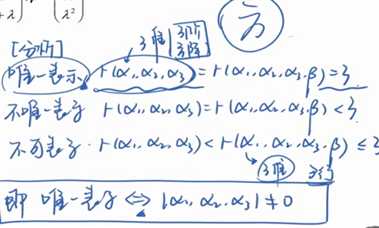 +λ) (λ²)
[分析]
3维 3阶
方
唯一表示 r(α₁,α₂,α₃)=r(α₁,α₂,α₃,β)=3
不唯一表示 r(α₁,α₂,α₃)=r(α₁,α₂,α₃,β)<3
不可表示. r(α₁,α₂,α₃)<r(α₁,α₂,α₃,β)≤3
3维
即 唯一表示 ⇔ |α₁,α₂,α₃|≠0